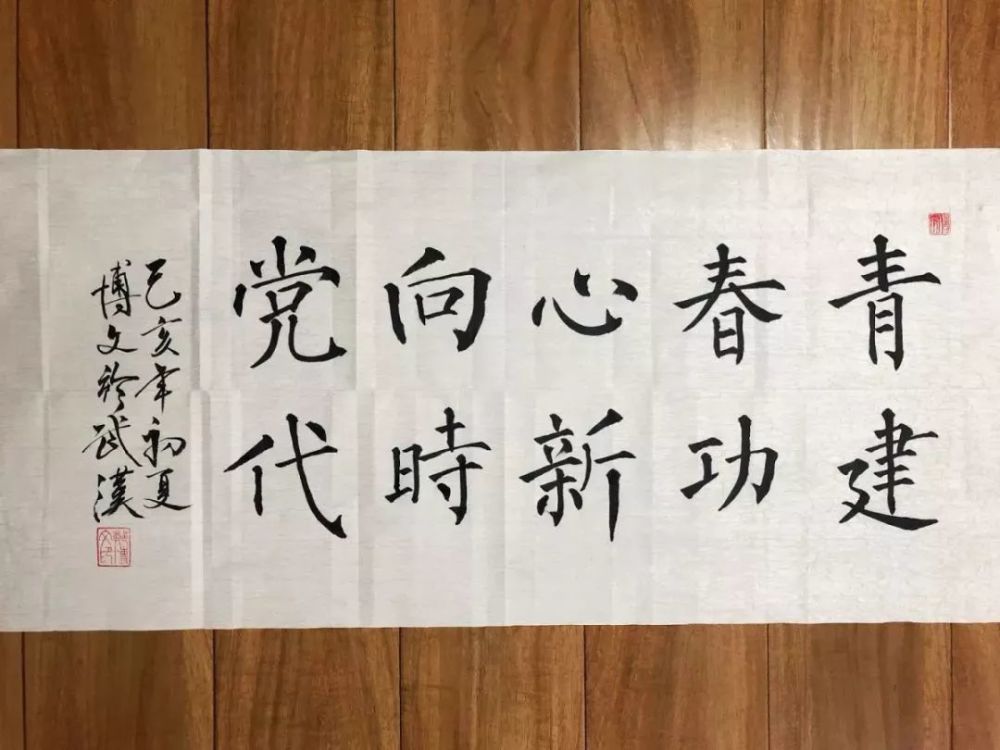 青春心向党
建功新時代
己亥年初夏
博文於武漢